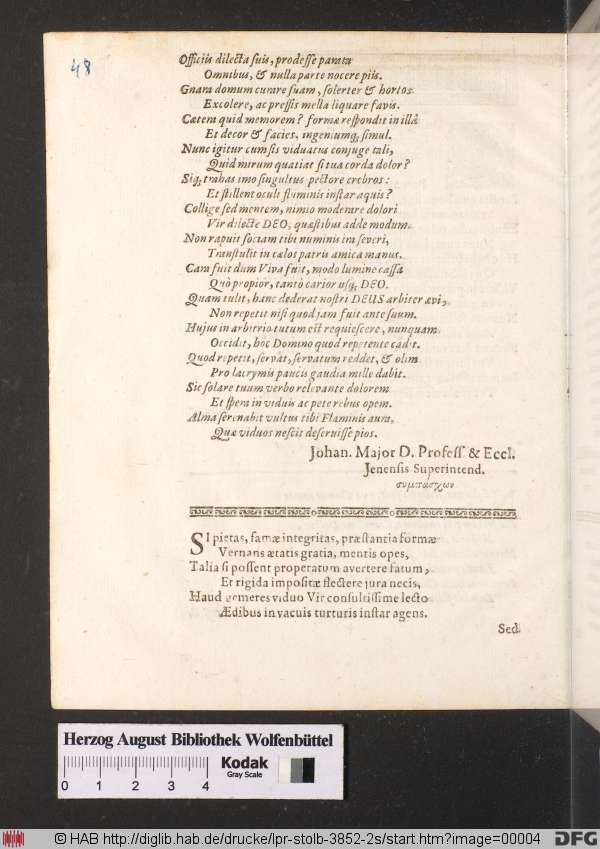 48
Officiis dilecta suis, prodesse parata
Omnibus, & nulla parte nocere piis.
Gnara domum curare suam, solerter & hortos
Excolere, ac pressis mella liquare favis.
Cætera quid memorem? formæ respondit in illâ
Et decor & facies, ingeniumq́; simul.
Nunc igitur cum sis viduatus conjuge tali,
Quid mirum quatiat si tua corda dolor?
Siq́; trahas imo singultus pectore crebros:
Et stillent oculi fluminis instar aquis?
Collige sed mentem, nimio moderare dolori
Vir dilecte DEO, quæstibus adde modum.
Non rapuit sociam tibi numinis ira severi,
Transtulit in cælos patris amica manus.
Cara fuit dum Viva fuit, modo lumine cassa
Quò propior, tantò carior usq́; DEO.
Quam tulit, hanc dederat nostri DEUS arbiter ævi,
Non repetit nisi quod jam fuit ante suum.
Hujus in arbitrio tutum est requiescere, nunquam
Occidit, hôc Domino quod repetente cadit.
Quod repetit, servat, servatum reddet, & olim
Pro lacrymis paucis gaudia mille dabit.
Sic solare tuum verbo relevante dolorem
Et spera in viduis ac pete rebus opem.
Alma serenabit vultus tibi Flaminis aura,
Quæ viduos nescit deseruisse pios.
Johan. Major D. Profess & Eccl.
Jenensis Superintend.
συμπάσχων
SI pietas, famæ integritas, præstantia formæ
Vernans ætatis gratia, mentis opes,
Talia si possent properatum avertere fatum,
Et rigida impositæ flectere jura necis,
Haud gemeres viduo Vir consultissime lecto
Ædibus in vacuis turturis instar agens.
Sed
Herzog August Bibliothek Wolfenbüttel
0 1 2 3 4
Kodak
Gray Scale
© HAB http://diglib.hab.de/drucke/lpr-stolb-3852-2s/start.htm?image=00004
DFG